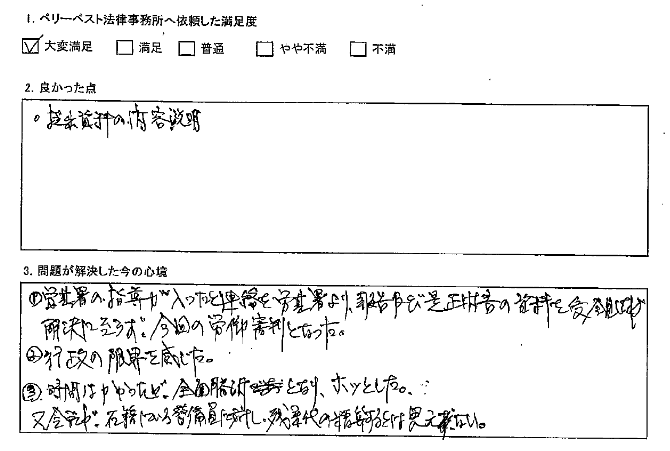 1. ベリーベスト法律事務所へ依頼した満足度
☑ 大変満足 □ 満足 □ 普通 □ やや不満 □ 不満
2. 良かった点
。提出資料の内容説明
3. 問題が解決した今の心境
①労基署の指導が入ったと連絡を労基署より、報告及び是正 の資料を受
解決に至らず。今回の労働審判となった。
②行政の限界を感じた。
③時間はかかったが、全面勝訴となり、ホッとした。
又会社が、在籍している警備員に対し、残業代の精算するとは思えない。